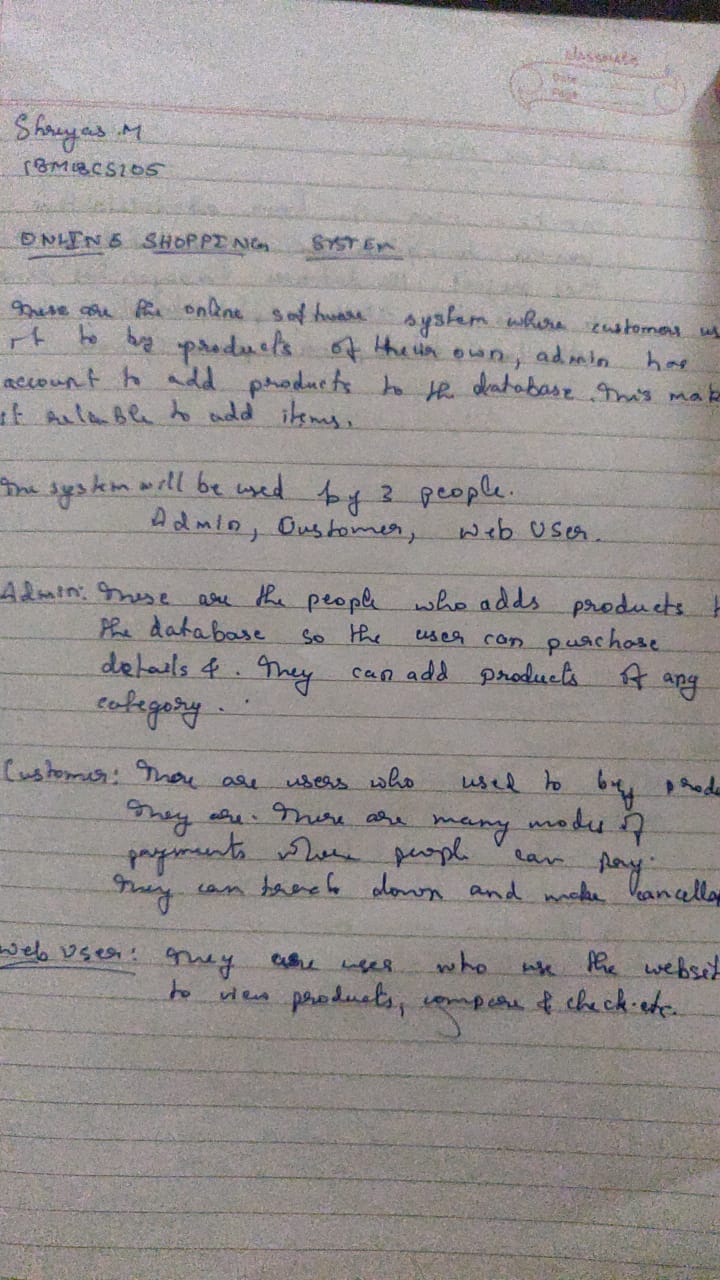 classmate
Date
Page
Shreyas .M
1BM18CS105
ONLINE SHOPPING SYSTEM
These are the online software system where customers us
it to by products of their own, admin has
account to add products to the database. This mak
it relaible to add items.
The system will be used by 3 people.
Admin, Customer, Web User.
Admin: These are the people who adds products t
the database so the user can purchase
details &. They can add products of any
category.
Customer: There are users who used to buy produ
They are. There are many modes of
payments where people can pay.
They can track down and make cancella
Web User: They are user who use the websit
to view products, compare & check.etc.